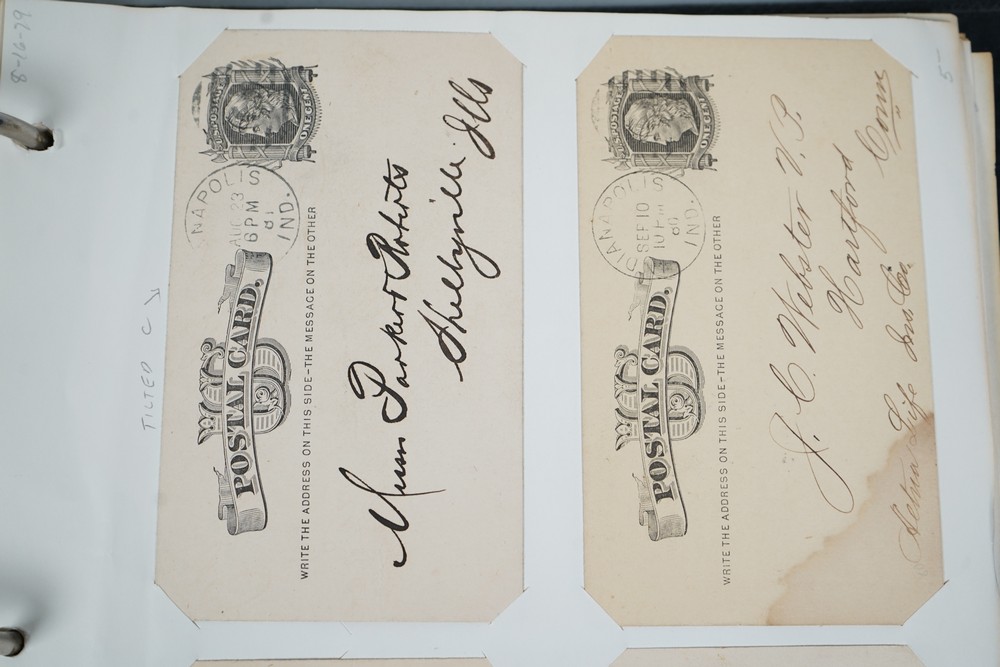 8-16-79
TILTED C
U.S. POSTAGE
ONE CENT
NAPOLIS
AUG 23
6 PM
81
IND.
US
POSTAL CARD.
WRITE THE ADDRESS ON THIS SIDE-THE MESSAGE ON THE OTHER
Munn Parker Roberts
Shelbyville Ills
5-
U.S. POSTAGE
ONE CENT
IANAPOLIS
SEP 10
10 PM
IND.
US
POSTAL CARD.
WRITE THE ADDRESS ON THIS SIDE-THE MESSAGE ON THE OTHER
J. C. Webster V. P.
Hartford Conn
Aetna Life Ins Co.